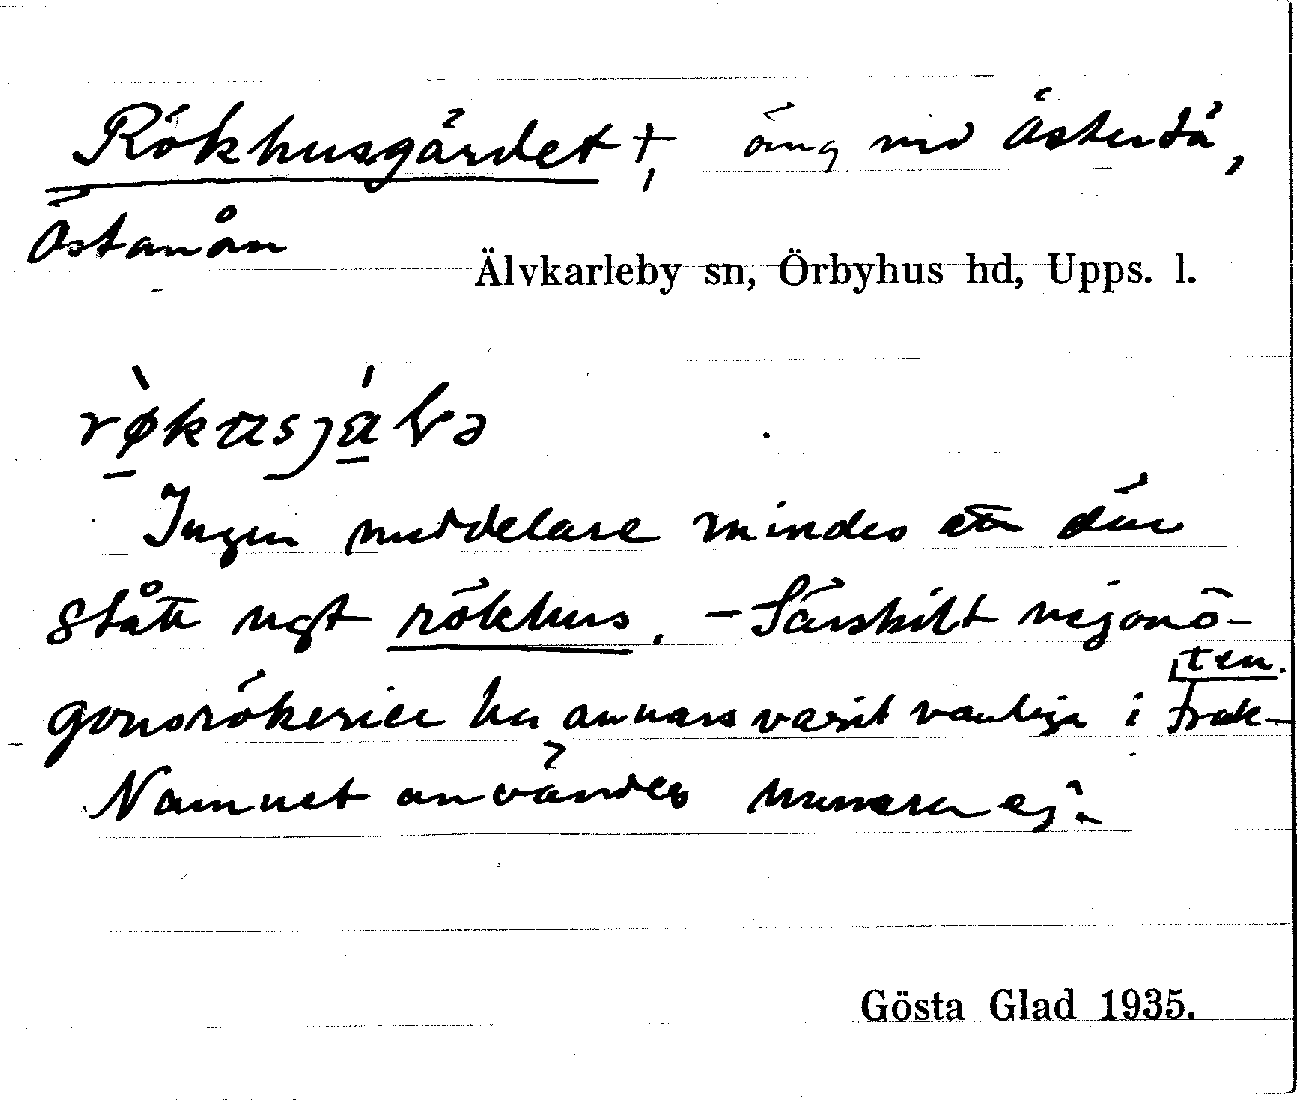 Rökhusgärdet †, äng vid Östertå,
Östanån
Älvkarleby sn, Örbyhus hd, Upps. l.
Ingen meddelare mindes att där
stått ngt rökhus. - Särskilt nejonö-
gonsrökerier ha annars varit vanliga i trak-
ten.
Namnet användes numera ej.
Gösta Glad 1935.